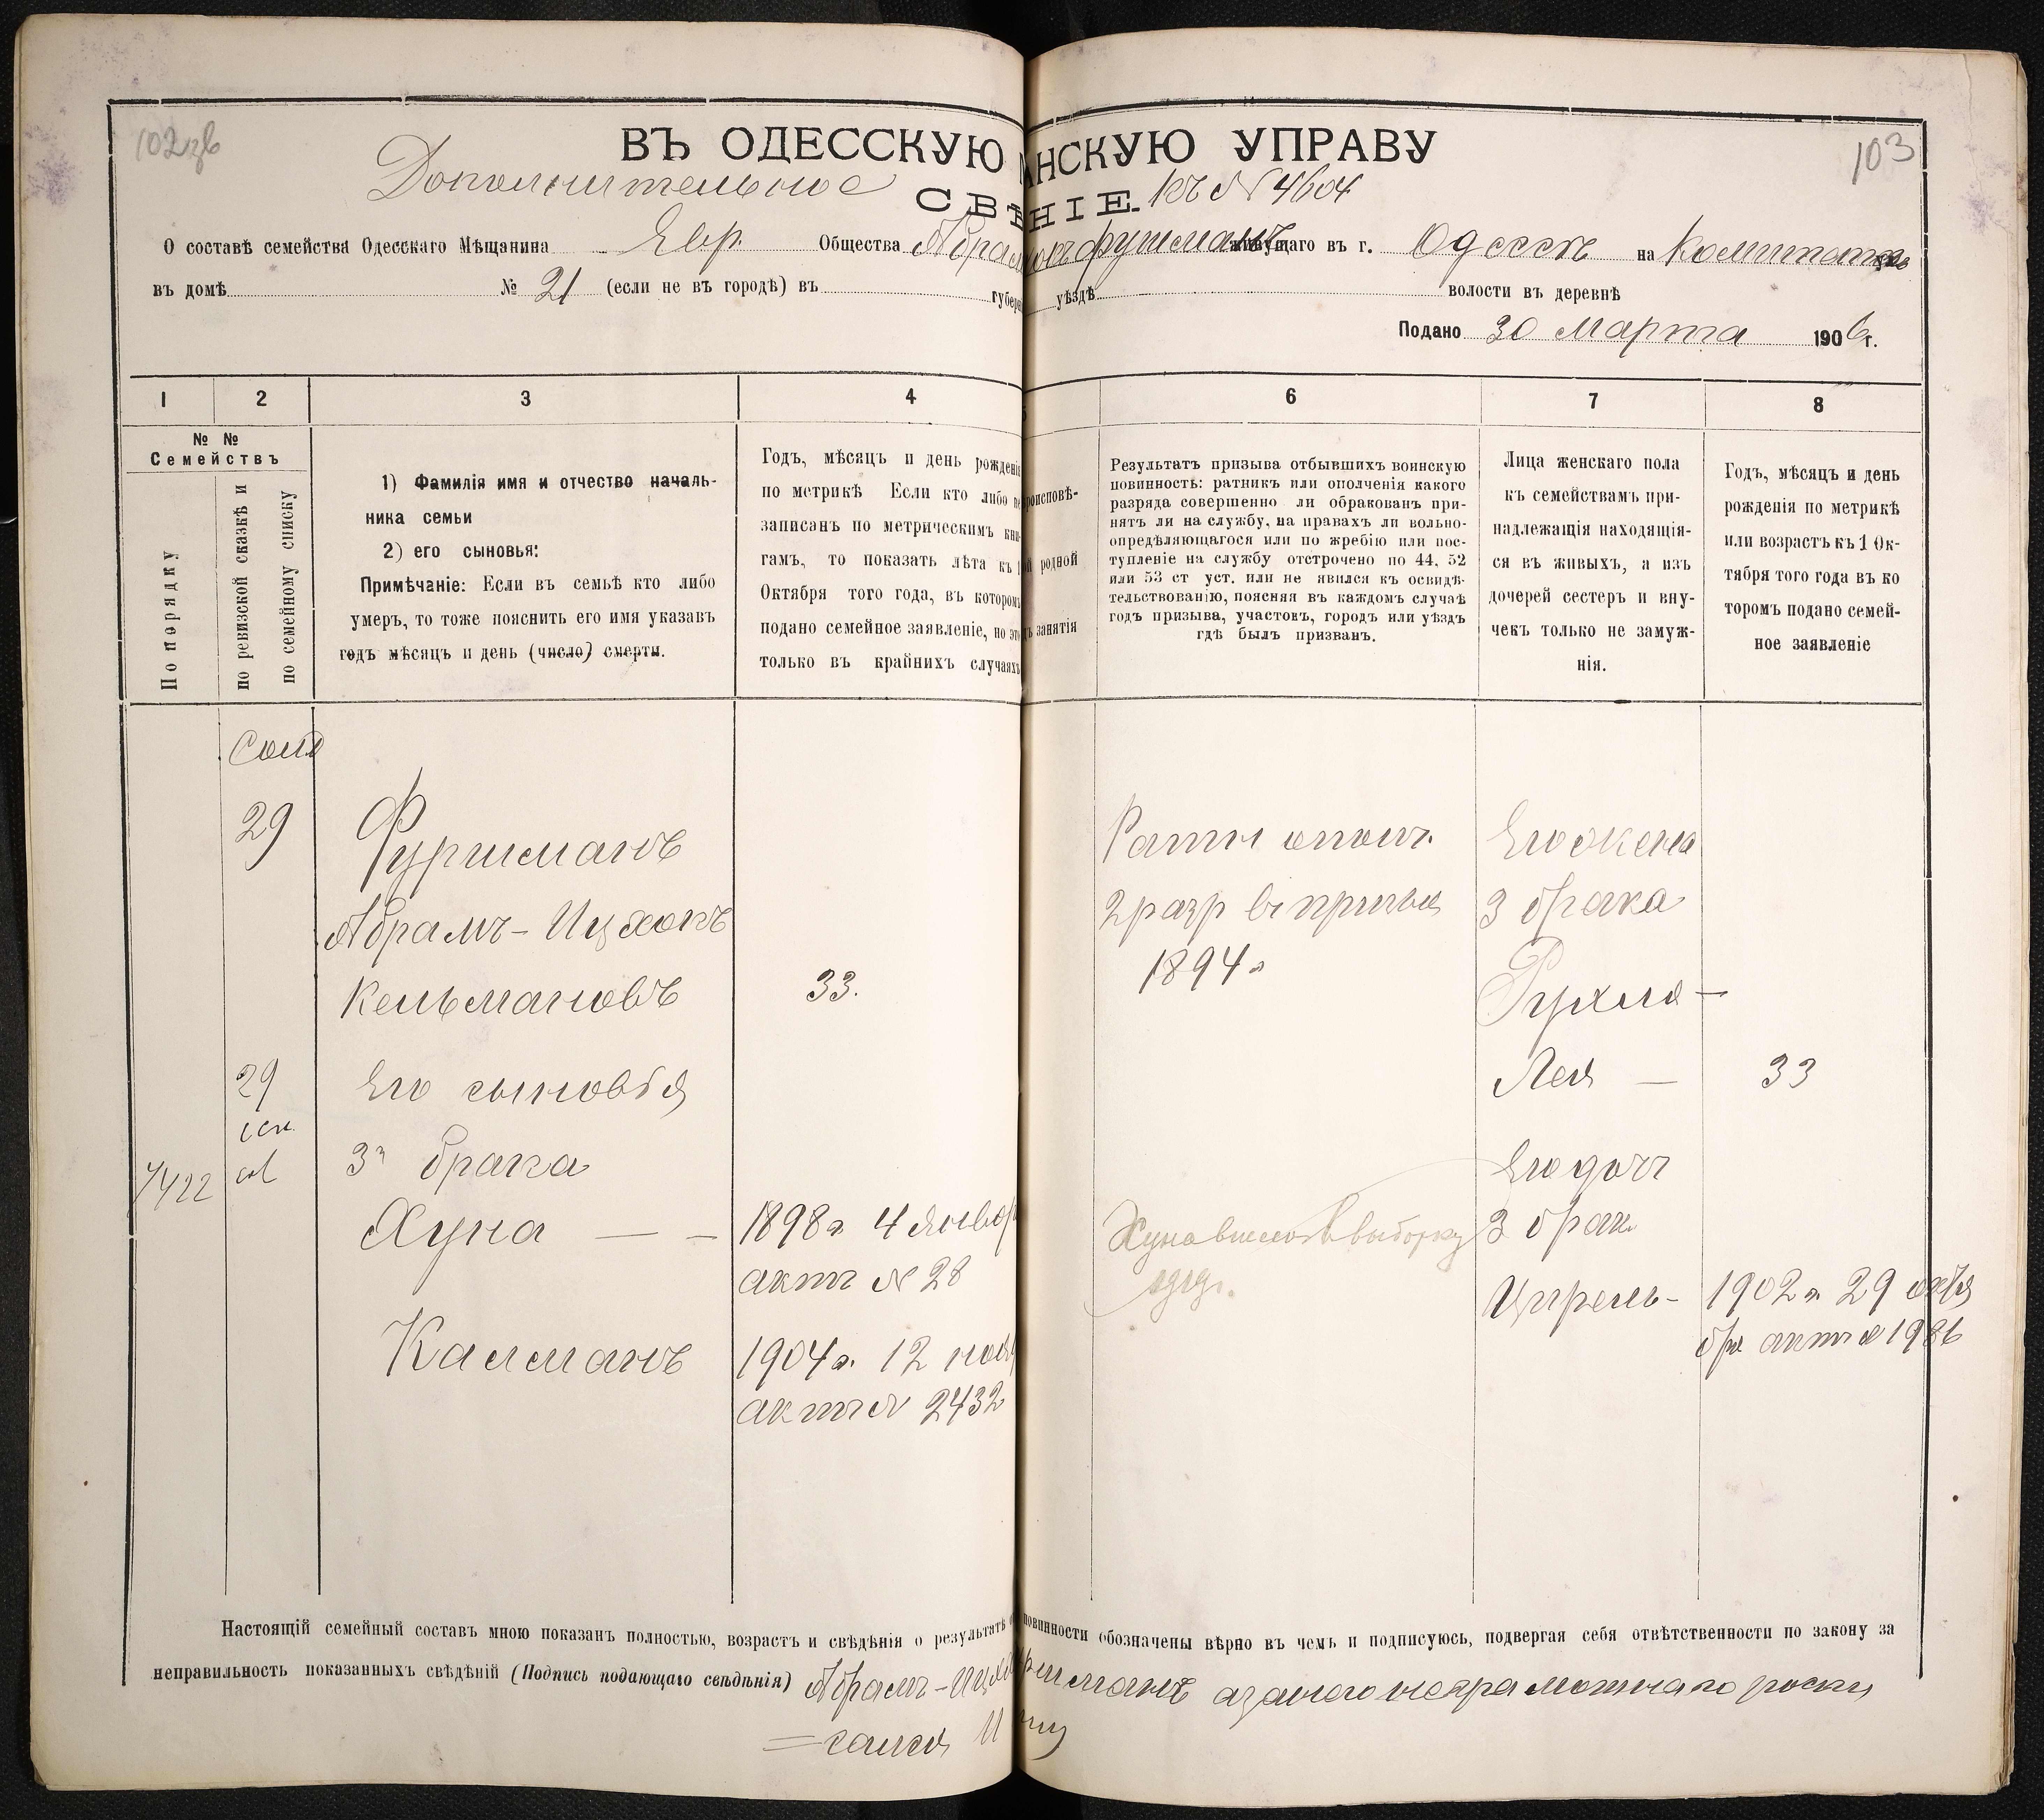 102 зв
103
ВЪ ОДЕССКУЮ АНСКУЮ УПРАВУ
Дополнительное СВѢ НІЕ. къ № 4604
О составѣ семейства Одесскаго Мѣщанина Евр. Общества Абрам Фуршманъ живущаго въ г. Одессѣ на
въ домѣ № 21 (если не въ городѣ) въ губерн уѣздѣ волости въ деревнѣ
Подано 30 Марта 1906 г.
1 2 3 4 5 6 7 8
№ №
Семействъ
По порядку
по ревизской сказкѣ и
по семейному списку
1) Фамилія имя и отчество началь-
ника семьи
2) его сыновья:
Примѣчаніе: Если въ семьѣ кто либо
умеръ, то тоже пояснить его имя указавъ
годъ мѣсяцъ и день (число) смерти.
Годъ, мѣсяцъ и день рожденія
по метрикѣ Если кто либо не
записанъ по метрическимъ кни-
гамъ, то показать лѣта къ 1
Октября того года, въ которомъ
подано семейное заявленіе, но это
только въ крайнихъ случаяхъ
роисповѣ-
ой родной
дъ занятія
Результатъ призыва отбывшихъ воинскую
повинность: ратникъ или ополченія какого
разряда совершенно ли обракованъ при-
нятъ ли на службу, на правахъ ли вольно-
опредѣляющагося или по жребію или пос-
тупленіе на службу отстрочено по 44, 52
или 53 ст уст. или не явился къ освидѣ-
тельствованію, поясняя въ каждомъ случаѣ
годъ призыва, участокъ, городъ или уѣздъ
гдѣ былъ призванъ.
Лица женскаго пола
къ семействамъ при-
надлежащія находящія-
ся въ живыхъ, а изъ
дочерей сестеръ и вну-
чекъ только не замуж-
нія.
Годъ, мѣсяцъ и день
рожденія по метрикѣ
или возрастъ къ 1 Ок-
тября того года въ ко
торомъ подано семей-
ное заявленіе
29
Фуршманъ
Абрамъ-Ицхокъ
Кельмановъ
33.
Ратн ополч.
2 разр въ призыв
1894 г
Его жена
3 брака
Рухля -
Лея — 33
29
Его сыновья
3го брака
7422
Хуна — — 1898 г 4 январ
актъ № 28
Калманъ 1904 г. 12 нояб
актъ № 2432
Хуна внесенъ въ выборку
Его доч
3 брак
Ципрель - 1902 г. 29 октя
бря актъ № 1986
Настоящій семейный составъ мною показанъ полностью, возрастъ и свѣдѣнія о результатѣ о повинности обозначены вѣрно въ чемъ и подписуюсь, подвергая себя отвѣтственности по закону за
неправильность показанныхъ свѣдѣній (Подпись подающаго свѣдѣнія) Абрамъ-Ицхо ршманъ а за него неграмотнаго роспи
=сался